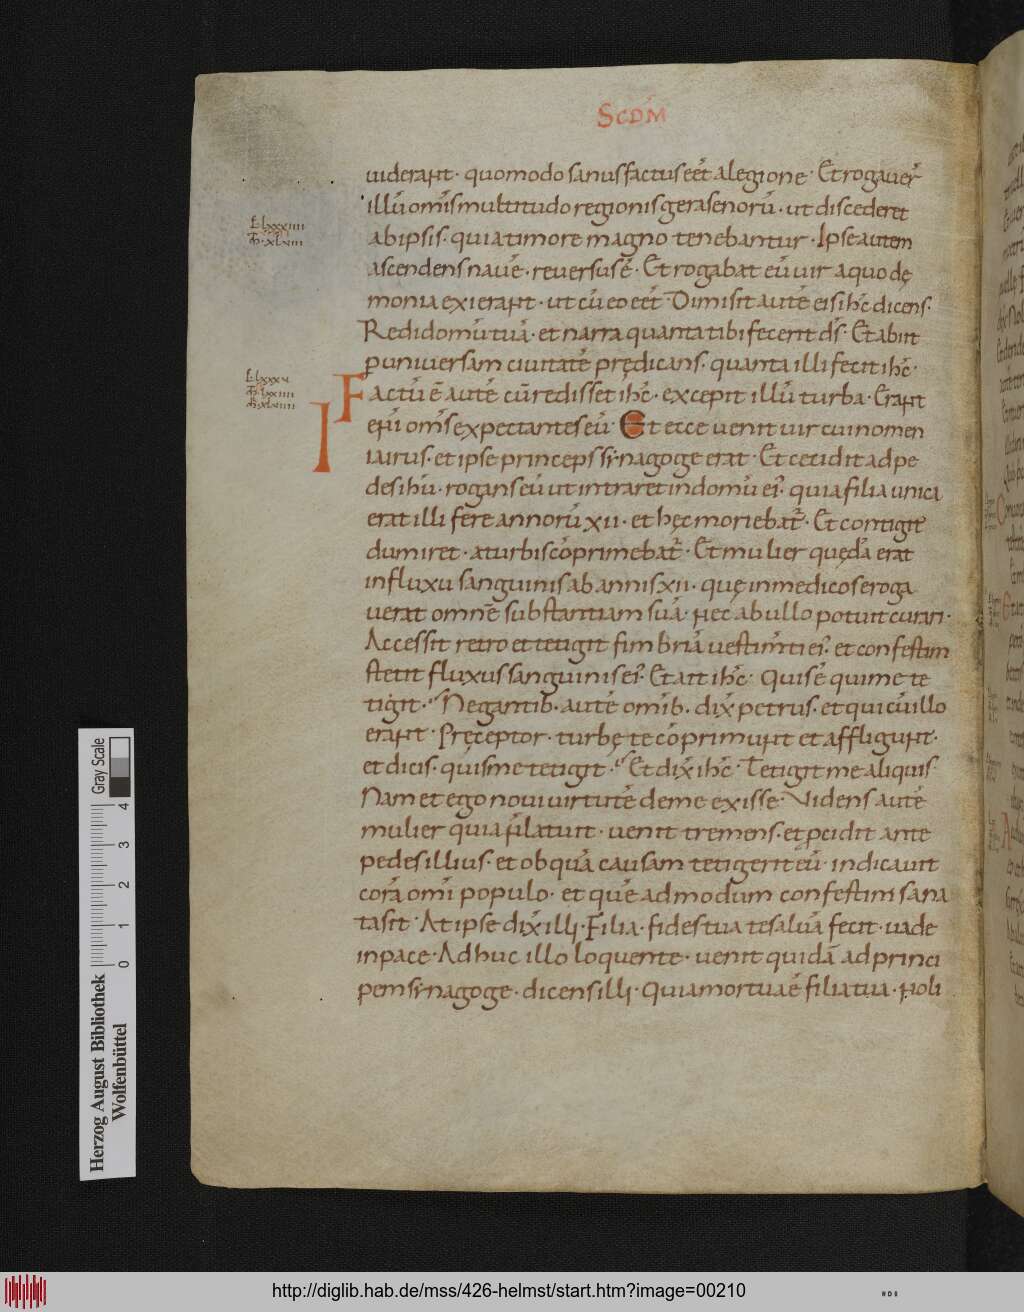 SCDM
uiderant · quomodo sanus factus eēt a legione · Et rogauer̄
illū om̄s multitudo regionis gerasenorū · ut discederet
ab ipsis · quia timore magno tenebantur · Ipse autem
L lxxxiiii
ascendens nauē · reuersus ē · Et rogabat eū uir a quo dę
monia exierant · ut cū eo eēt · Dimisit autē eis ih̄c dicens ·
Redi domū tuā · et narra quanta tibi fecerit d̄s · Et abiit
p uniuersam ciuitatē prędicans · quanta illi fecit ih̄c ·
L lxxxv
Factū ē autē cū redisset ih̄c · excepit illū turba · Erant
enī om̄s expectantes eū · Et ecce uenit uir cui nomen
iairus · et ipse princeps synagogę erat · Et cecidit ad pe
des ih̄u · rogans eū ut intraret in domū ei᾽ · quia filia unica
erat illi fere annorū xii · et hęc moriebat᾽ · Et contigit
dum iret · a turbis cōprimebat᾽ · Et mulier quędā erat
in fluxu sanguinis ab annis xii · quę in medicos eroga
uerat omnē substantiam suā · nec ab ullo potuit curari ·
Accessit retro et tetigit fimbriā uestim̄ti ei᾽ · et confestim
stetit fluxus sanguinis ei᾽ · Et ait ih̄c · Quis ē qui me te
tigit · Negantib · autē omīb · dix̄ petrus · et qui cū illo
erant · Pręceptor · turbę te cōprimunt et affligunt ·
et dicis · quis me tetigit · Et dix̄ ih̄c · Tetigit me aliquis ·
Nam et ego noui uirtutē de me exisse · Videns autē
mulier quia n̄ latuit · uenit tremens · et p̄cidit ante
pedes illius · et ob quā causam tetigerit eū · indicauit
corā omī populo · et quē ad modum confestim sana
ta sit · At ipse dix̄ illi · Filia · fides tua te saluā fecit · uade
in pace · Adhuc illo loquente · uenit quidā ad princi
pem synagogę · dicens illi · Quia mortua ē filia tua · noli
Herzog August Bibliothek
Wolfenbüttel
0 1 2 3 4
Gray Scale
http://diglib.hab.de/mss/426-helmst/start.htm?image=00210